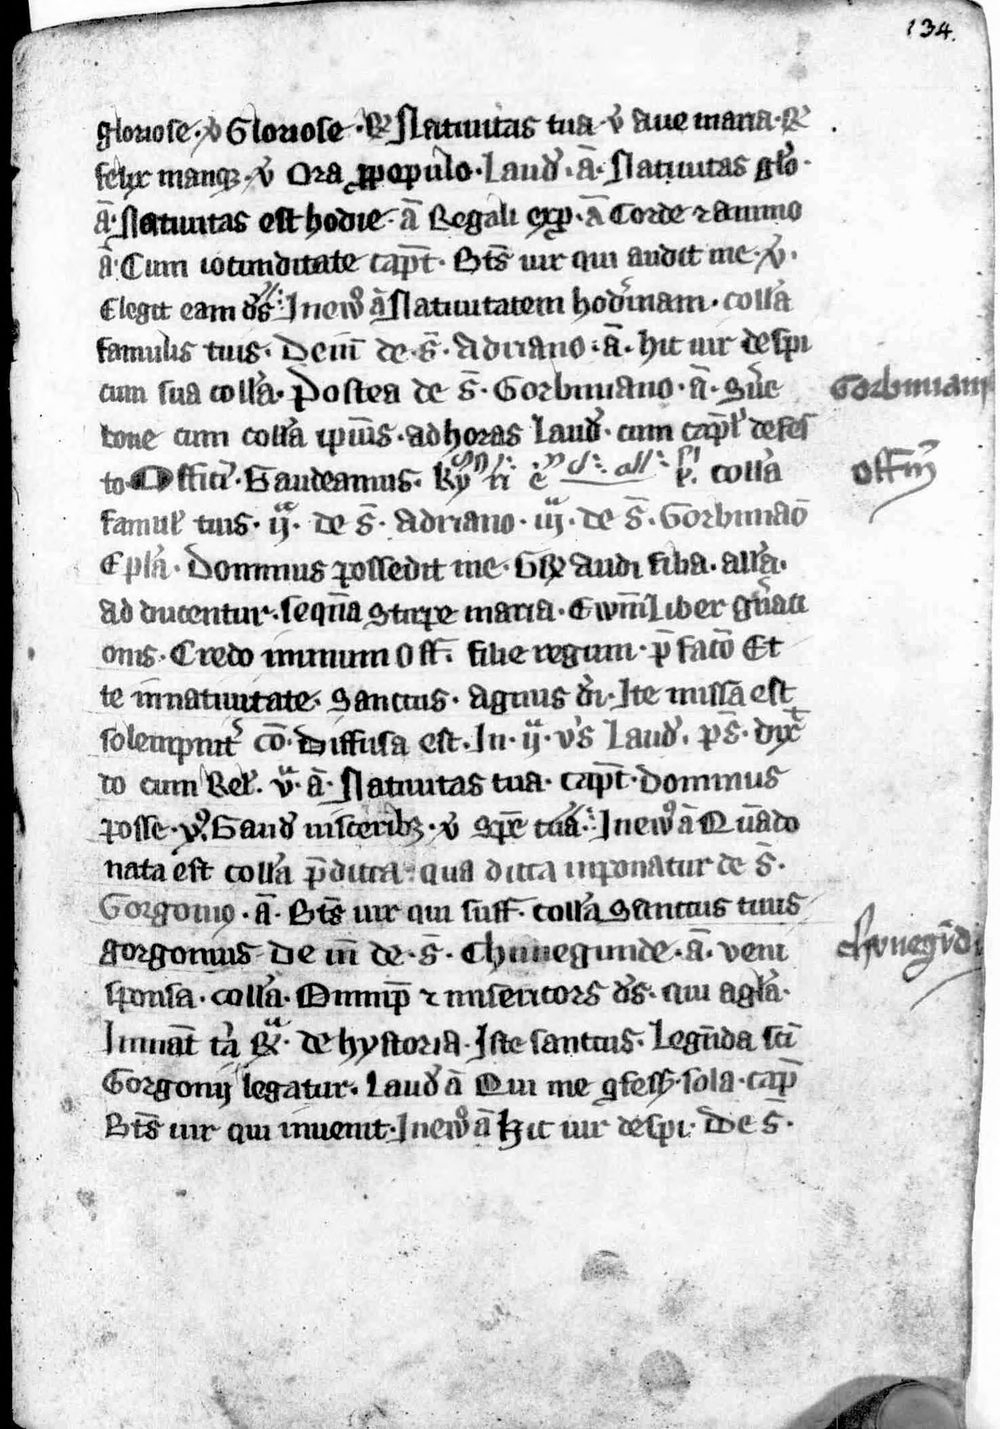 134.
gloriose · v̄ Gloriose · R̷ Natiuitas tua v̄ aue maria · R̷
felix namq₃ · v̄ Ora ꝓ populo · Laud̛ · ā · Natiuitas glơ ·
ā · Natiuitas est hodie · ā Regali exꝑ · ā Corde ⁊ animo
ā · Cum iocunditate capt̄ · Bt̄s uir qui audit me · v̄ ·
Elegit eam d̛s · In ew̛ ā Natiuitatem hod̛nam · coll̛a
famulis tuis · Dein̄ de · s̄ · Adriano · ā · hic uir despi
cum sua coll̛a · Postea de s̄ · Gorbiniano · ā · S̛ue
Gorbiniani
bone cum coll̛a ip̄ius · ad horas Laud̛ · cum capl̛ de fes
to · Offici̛ · Gaudeamus · Ky coll̛a
Offm̄
famul̛ tuis · ij · de s̄ · Adriano · iij · de s̄ · Gorbiniāo
Epl̛a · Dominus possedit me · GR̷ audi filia · all̛a ·
ad ducentur · sequn̄a Stirpe maria · Ew̄m Liber gn̛aci
onis · Credo in unum Off̄ · filie regum · p̄facō Et
te in natiuitate · Sanctus · Agnus d̛i · Ite missa est
solempnit̛ cō · Diffusa est · In · ij · v̛s Laud̛ · ps̄ · dyx̄
to cum Rel̛ · v̄ · ā · Natiuitas tua · capt̄ · Dominus
posse · y̛ · Gaud̛ uisceribꝫ · v̄ Spē tua · In ew̛ ā Qn̄ado
nata est coll̛a p̄dicta · qua dicta inponatur de s̄ ·
Gorgonio · ā · Bt̄s uir qui suff̄ · coll̛a Sanctus tuus
gorgonius De in̄ de · s̄ · Chunegunde · ā · veni
chunegūdi
sponsa · coll̛a · Omnip̄ ⁊ misericors d̛s · qui agl̛a ·
Inuiat̄ R̷ · de hystoria · Iste sanctus · Legn̄da sci̅
Gorgonij legatur · Laud̛ ā Qui me ꝯfess̛ · sola · cap̄
Bt̄s uir qui inuenit · In ew̛ ā Hic uir despi · De s̄ ·